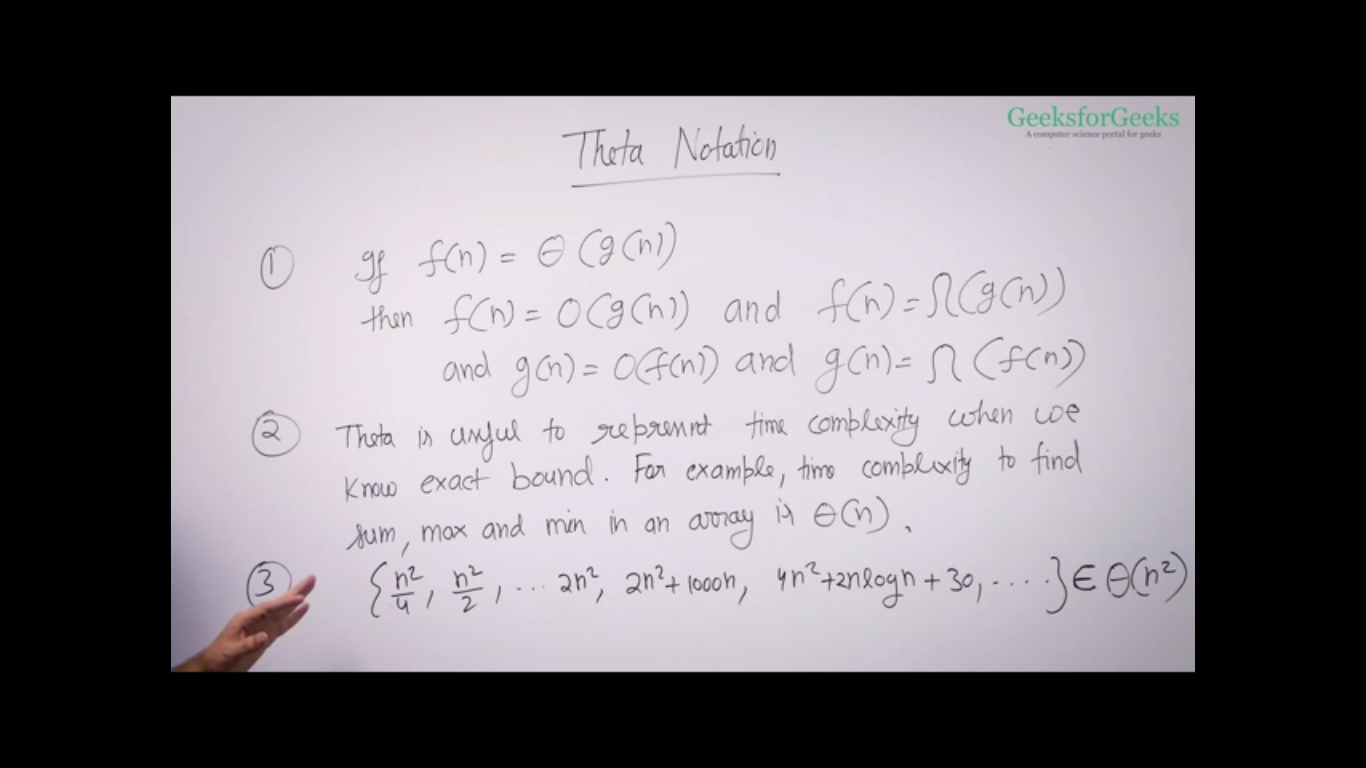 GeeksforGeeks
A computer science portal for geeks
Theta Notation
① If f(n) = θ(g(n))
then f(n) = O(g(n)) and f(n) = Ω(g(n))
and g(n) = O(f(n)) and g(n) = Ω(f(n))
② Theta is useful to represent time complexity when we
know exact bound. For example, time complexity to find
sum, max and min in an array is θ(n).
③ {n²/4, n²/2, ... 2n², 2n²+1000n, 4n²+2nlogn+30, ....} ∈ θ(n²)